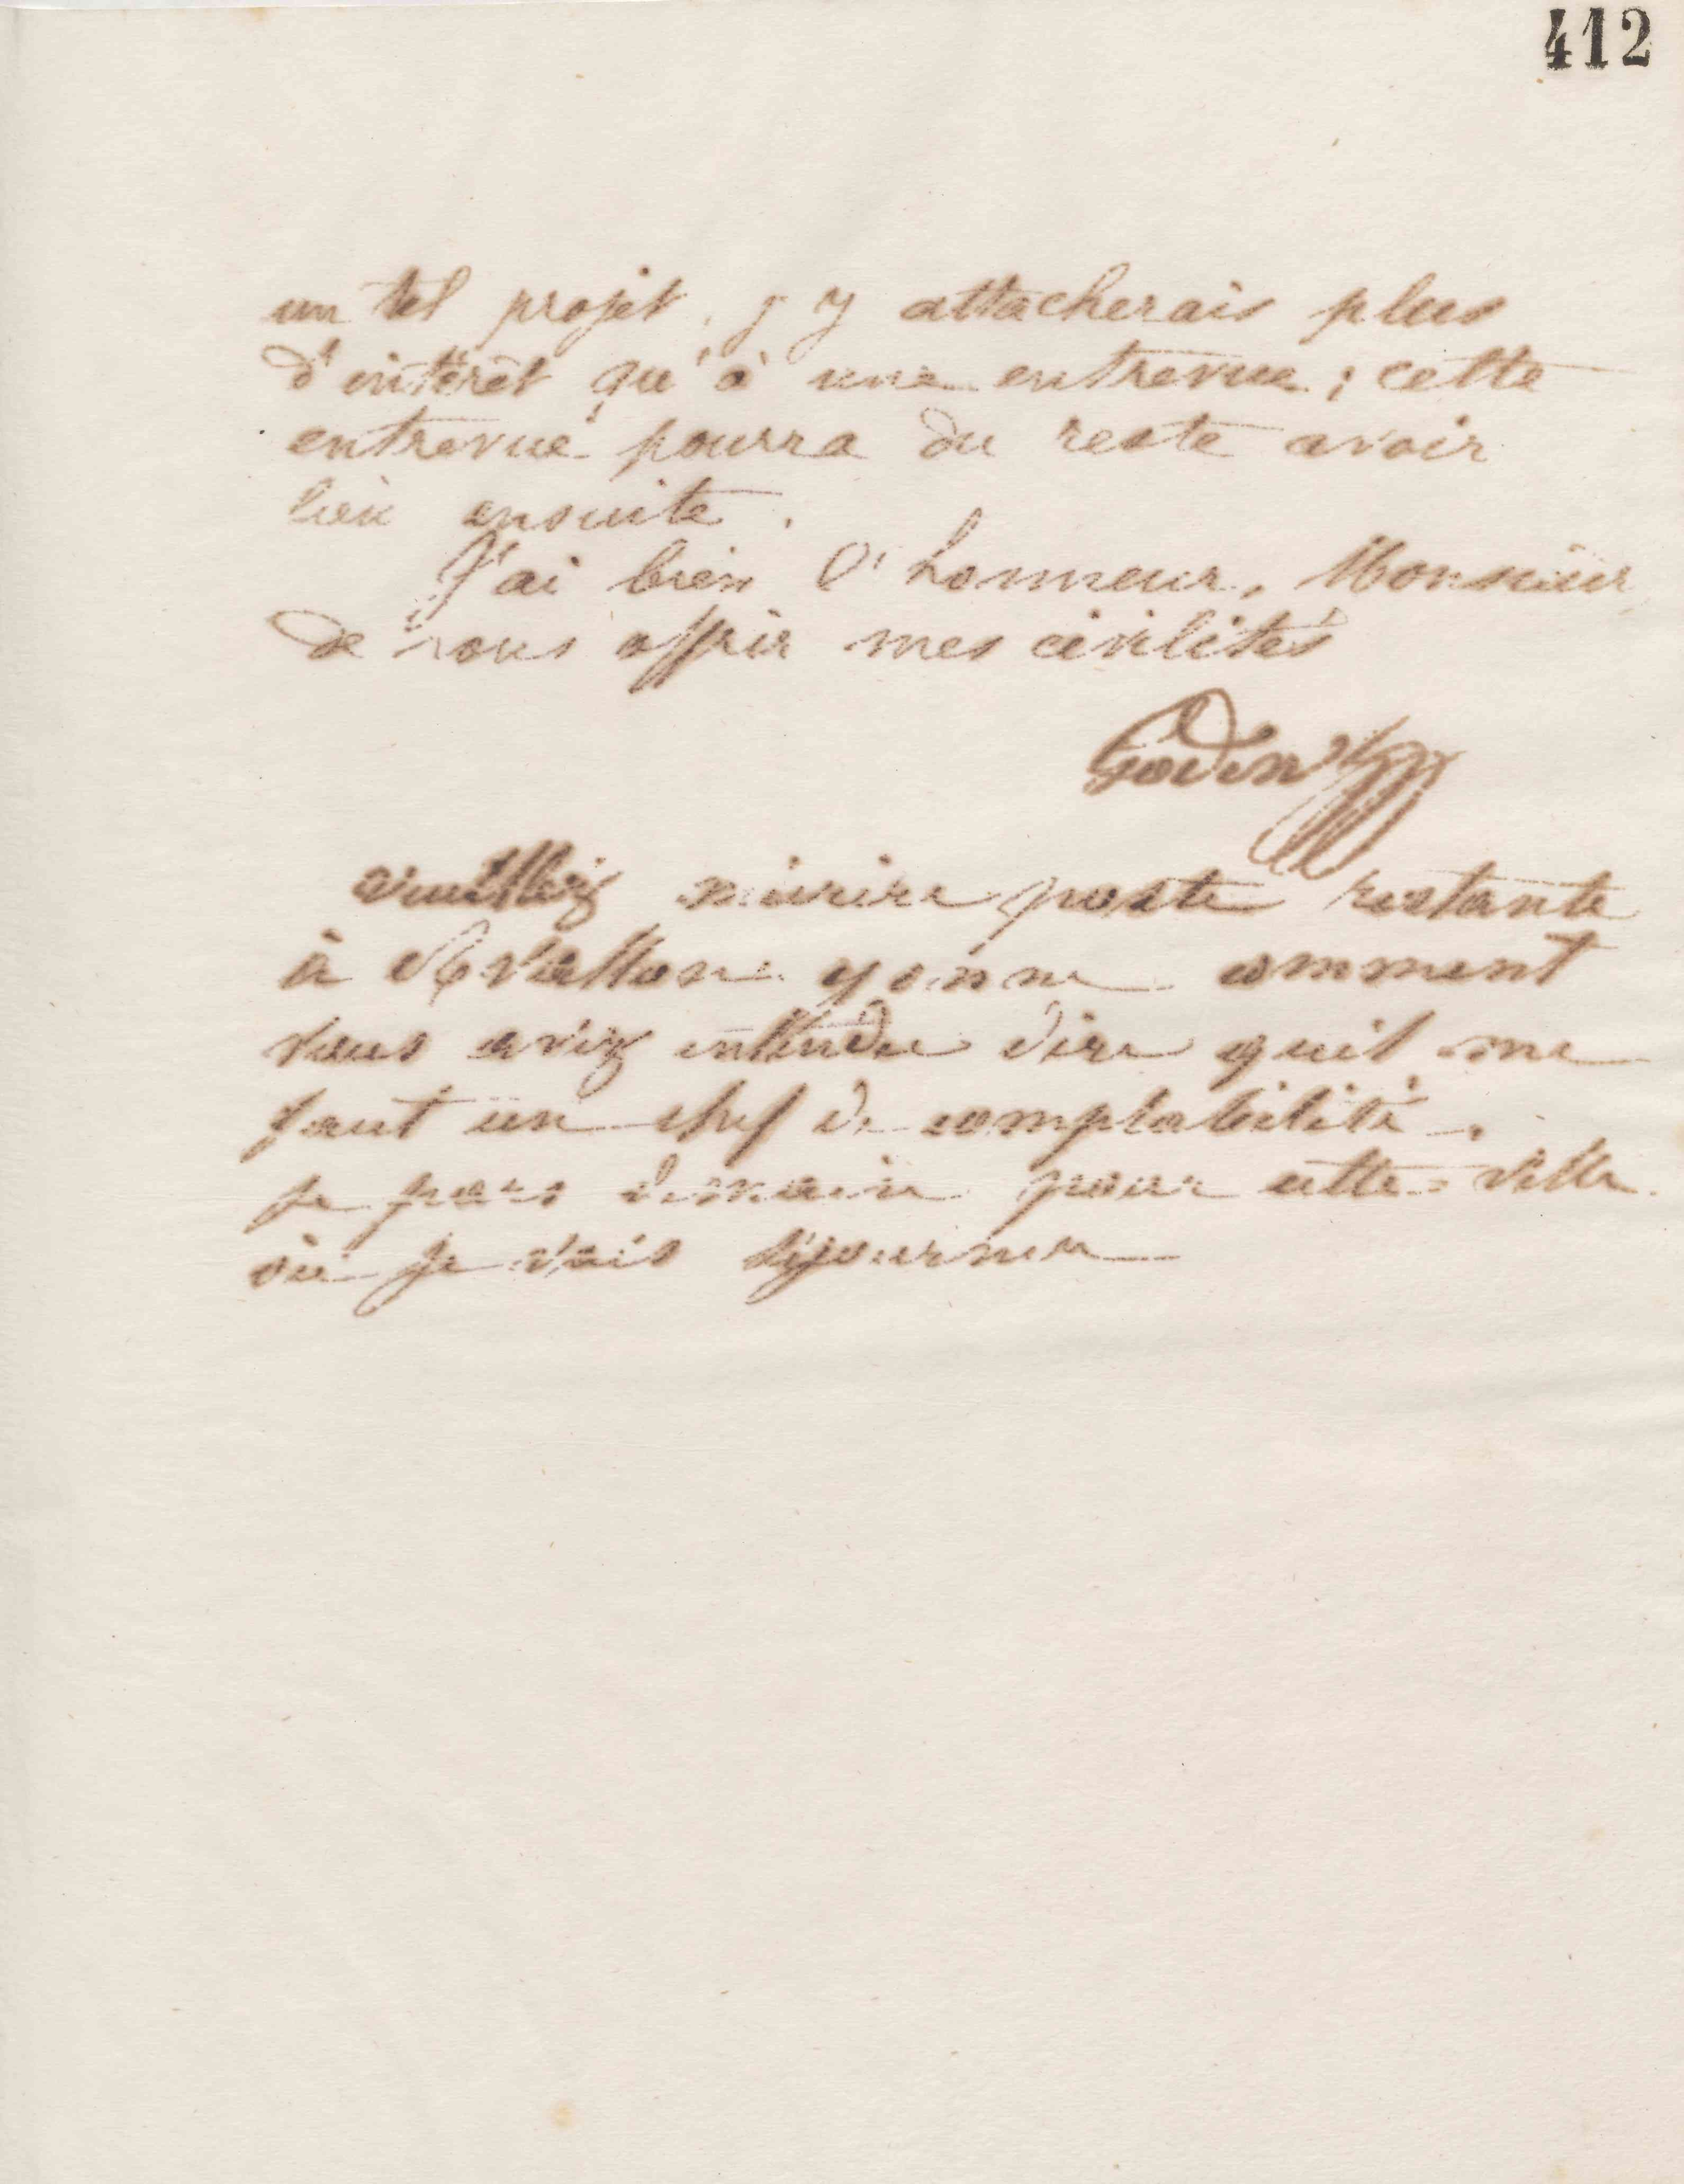 412
un tel projet, j'y attacherais plus
d'intérêt qu'à une entrevue ; cette
entrevue pourra du reste avoir
lieu ensuite.
J'ai bien l'honneur, Monsieur
de vous offrir mes civilités
Godin
veuillez m'écrire poste restante
à Avallon yonne comment
vous avez entendu dire quil me
faut un chef de comptabilité.
je pars demain pour cette ville
où je vais séjourner